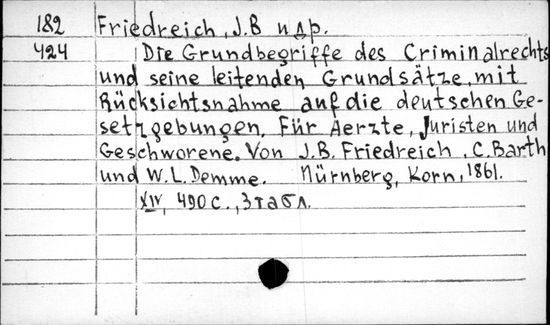 182 Friedreich, J.B и др.
424 Die Grundbegriffe des Criminalrechts
und seine leitenden Grundsätze, mit
Rücksichtsnahme auf die deutschen Ge-
setzgebungen. Für Aerzte, Juristen und
Geschworene. Von J.B. Friedreich, C. Barth
und W.L. Demme. Nürnberg, Korn, 1861.
XIV, 490 с., 3 табл.